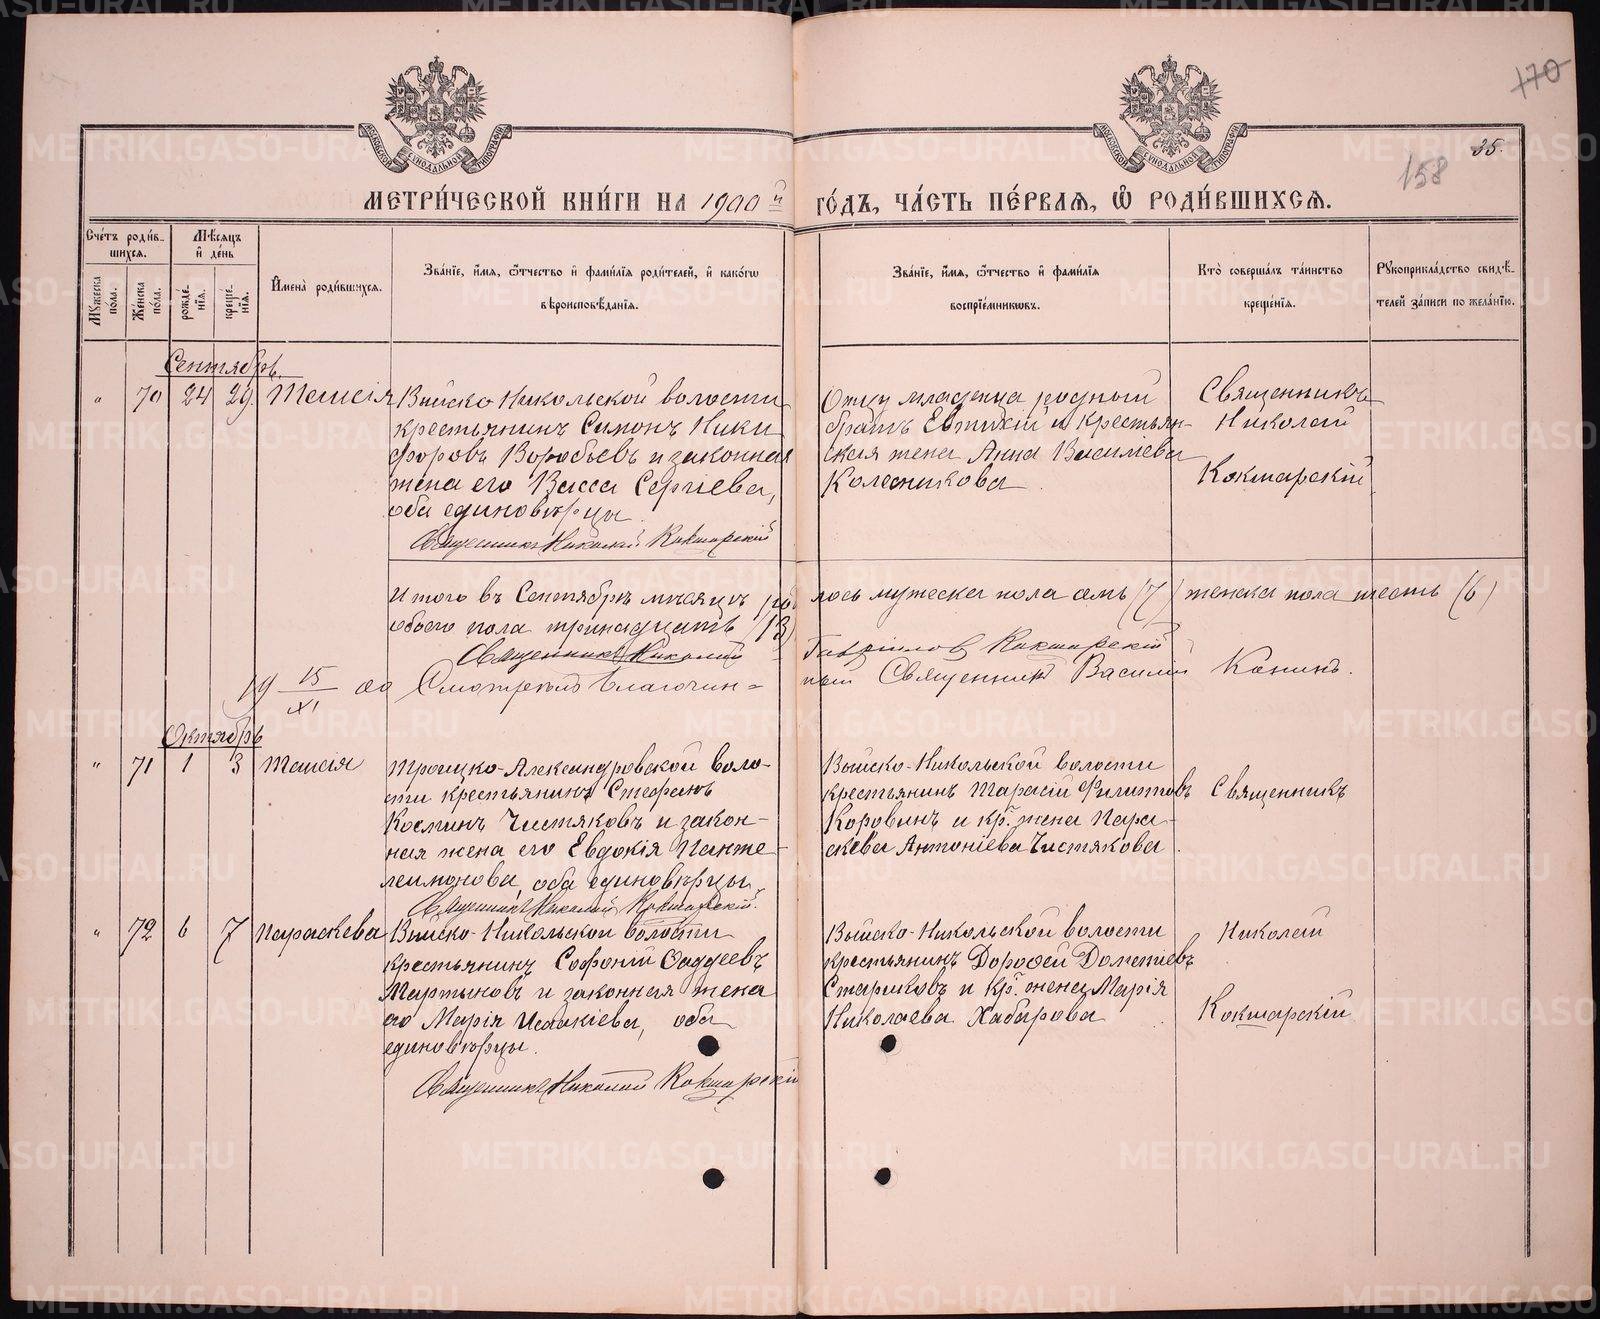 170
35.
158
МЕТРИ́ЧЕСКОЙ КНИ́ГИ НА 1900 й ГО́ДЪ, ЧА́СТЬ ПЕ́РВАЯ, Ѽ РОДИ́ВШИХСЯ.
Сче́тъ роди́в-
шихся.
Мꙋ́жеска по́ла.
Же́нска по́ла.
Мѣ́сяцъ
и҆ де́нь
рожде́-
нїя.
креще́-
нїя.
И҆мена̀ роди́вшихся.
Зва́нїе, и҆́мя, ѻ҆́тчество и҆ фами́лїя роди́телей, и҆ како́гѡ
вѣроисповѣ́данїя.
Зва́нїе, и҆́мя, ѻ҆́тчество и҆ фами́лїя
воспрїе́мникѡвъ.
Кто̀ соверша́лъ та́инство
креще́нїя.
Рꙋкоприкла́дство свидѣ́-
телей за́писи по жела́нїю.
Сентябрь.
" 70 24 29. Таисія
Выйско-Никольской волости
крестьянинъ Симонъ Ники
форовъ Воробьевъ и законная
жена его Васса Сергіева,
оба единовѣрцы.
Священникъ Николай Кокшарскій
Отцу младенца родный
братъ Евтихій и крестьян-
ская жена Анна Василіева
Колесникова.
Священникъ
Николай
Кокшарскій
Итого въ Сентябрѣ мѣсяцѣ роди лось мужеска пола семь (7) женска пола шесть (6)
обоего пола тринадцать (13)
Священникъ Николай Гавриловъ Кокшарскій
19 15/XI 00 Смотрѣлъ благочин= ный Священникъ Василій Конинъ.
Октябрь
" 71 1 3 Таисія
Троицко-Александровской воло-
сти крестьянинъ Стефанъ
Косминъ Чистяковъ и закон-
ная жена его Евдокія Панте-
леимонова, оба единовѣрцы.
Священникъ Николай Кокшарскій.
Выйско-Никольской волости
крестьянинъ Тарасій Филиповъ
Коровинъ и кр. жена Пара-
скева Антоніева Чистякова.
Священникъ
" 72 6 7 Параскева
Выйско-Никольской волости
крестьянинъ Софоній Ѳаддеевъ
Мартыновъ и законная жена
его Марія Исаакіева, оба
единовѣрцы.
Священникъ Николай Кокшарскій
Выйско-Никольской волости
крестьянинъ Дороѳей Дометіевъ
Стариковъ и кр. жена Марія
Николаева Хабарова
Николай
Кокшарскій
METRIKI.GASO-URAL.RU